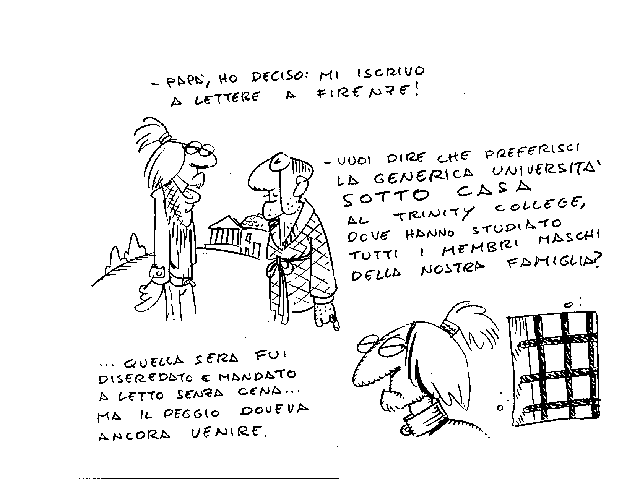 - PAPA', HO DECISO: MI ISCRIVO
A LETTERE A FIRENZE!
- VUOI DIRE CHE PREFERISCI
LA GENERICA UNIVERSITA'
SOTTO CASA
AL TRINITY COLLEGE,
DOVE HANNO STUDIATO
TUTTI I MEMBRI MASCHI
DELLA NOSTRA FAMIGLIA?
... QUELLA SERA FUI
DISEREDATO E MANDATO
A LETTO SENZA CENA...
MA IL PEGGIO DOVEVA
ANCORA VENIRE.